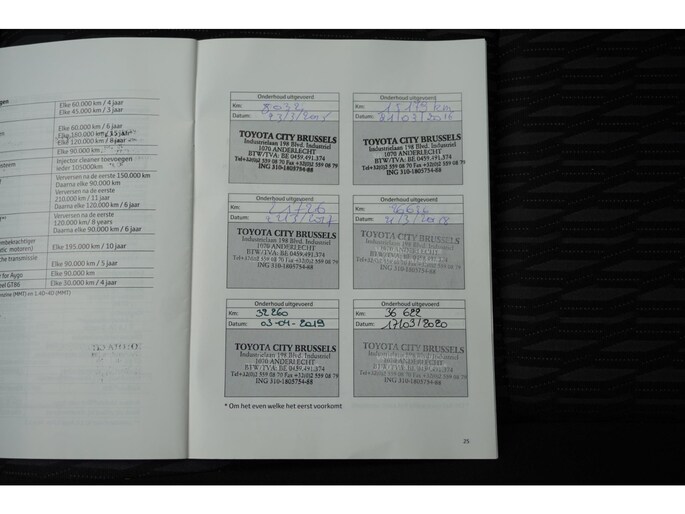 gen
Elke 60.000 km / 4 jaar
Elke 45.000 km / 3 jaar
Elke 60.000 km / 6 jaar
Elke 180.000 km / 15 jaar
Elke 120.000 km / 8 jaar
Elke 90.000 km
steem
Injector cleaner toevoegen
ieder 105000km
Verversen na de eerste 150.000 km
Daarna elke 90.000 km
Verversen na de eerste
210.000 km / 11 jaar
Daarna elke 120.000 km / 6 jaar
Verversen na de eerste
120.000 km/ 8 years
Daarna elke 90.000 km / 6 jaar
mbekrachtiger
Elke 195.000 km / 10 jaar
he transmissie
Elke 90.000 km / 5 jaar
for Aygo
Elke 90.000 km
eel GT86
Elke 30.000 km / 4 jaar
Onderhoud uitgevoerd
Km: 8032
Datum: 23/3/2015
TOYOTA CITY BRUSSELS
Industrielaan 198 Blvd. Industriel
1070 ANDERLECHT
BTW/TVA: BE 0459.491.374
Tel+32(0)2 559 08 70 Fax +32(0)2 559 08 79
ING 310-1805754-88
Onderhoud uitgevoerd
Km: 15179 km
Datum: 21/03/2016
TOYOTA CITY BRUSSELS
Industrielaan 198 Blvd. Industriel
1070 ANDERLECHT
BTW/TVA: BE 0459.491.374
Tel+32(0)2 559 08 70 Fax +32(0)2 559 08 79
ING 310-1805754-88
Onderhoud uitgevoerd
Km:
Datum:
TOYOTA CITY BRUSSELS
Industrielaan 198 Blvd. Industriel
1070 ANDERLECHT
BTW/TVA: BE 0459.491.374
Tel+32(0)2 559 08 70 Fax +32(0)2 559 08 79
ING 310-1805754-88
Onderhoud uitgevoerd
Km:
Datum: 21/3/2018
TOYOTA CITY BRUSSELS
Industrielaan 198 Blvd. Industriel
1070 ANDERLECHT
BTW/TVA: BE 0459.491.374
Tel+32(0)2 559 08 70 Fax +32(0)2 559 08 79
ING 310-1805754-88
Onderhoud uitgevoerd
Km: 32260
Datum: 03-04-2019
TOYOTA CITY BRUSSELS
Industrielaan 198 Blvd. Industriel
1070 ANDERLECHT
BTW/TVA: BE 0459.491.374
Tel+32(0)2 559 08 70 Fax +32(0)2 559 08 79
ING 310-1805754-88
Onderhoud uitgevoerd
Km: 36 622
Datum: 17/03/2020
TOYOTA CITY BRUSSELS
Industrielaan 198 Blvd. Industriel
1070 ANDERLECHT
BTW/TVA: BE 0459.491.374
Tel+32(0)2 559 08 70 Fax +32(0)2 559 08 79
ING 310-1805754-88
* Om het even welke het eerst voorkomt
25